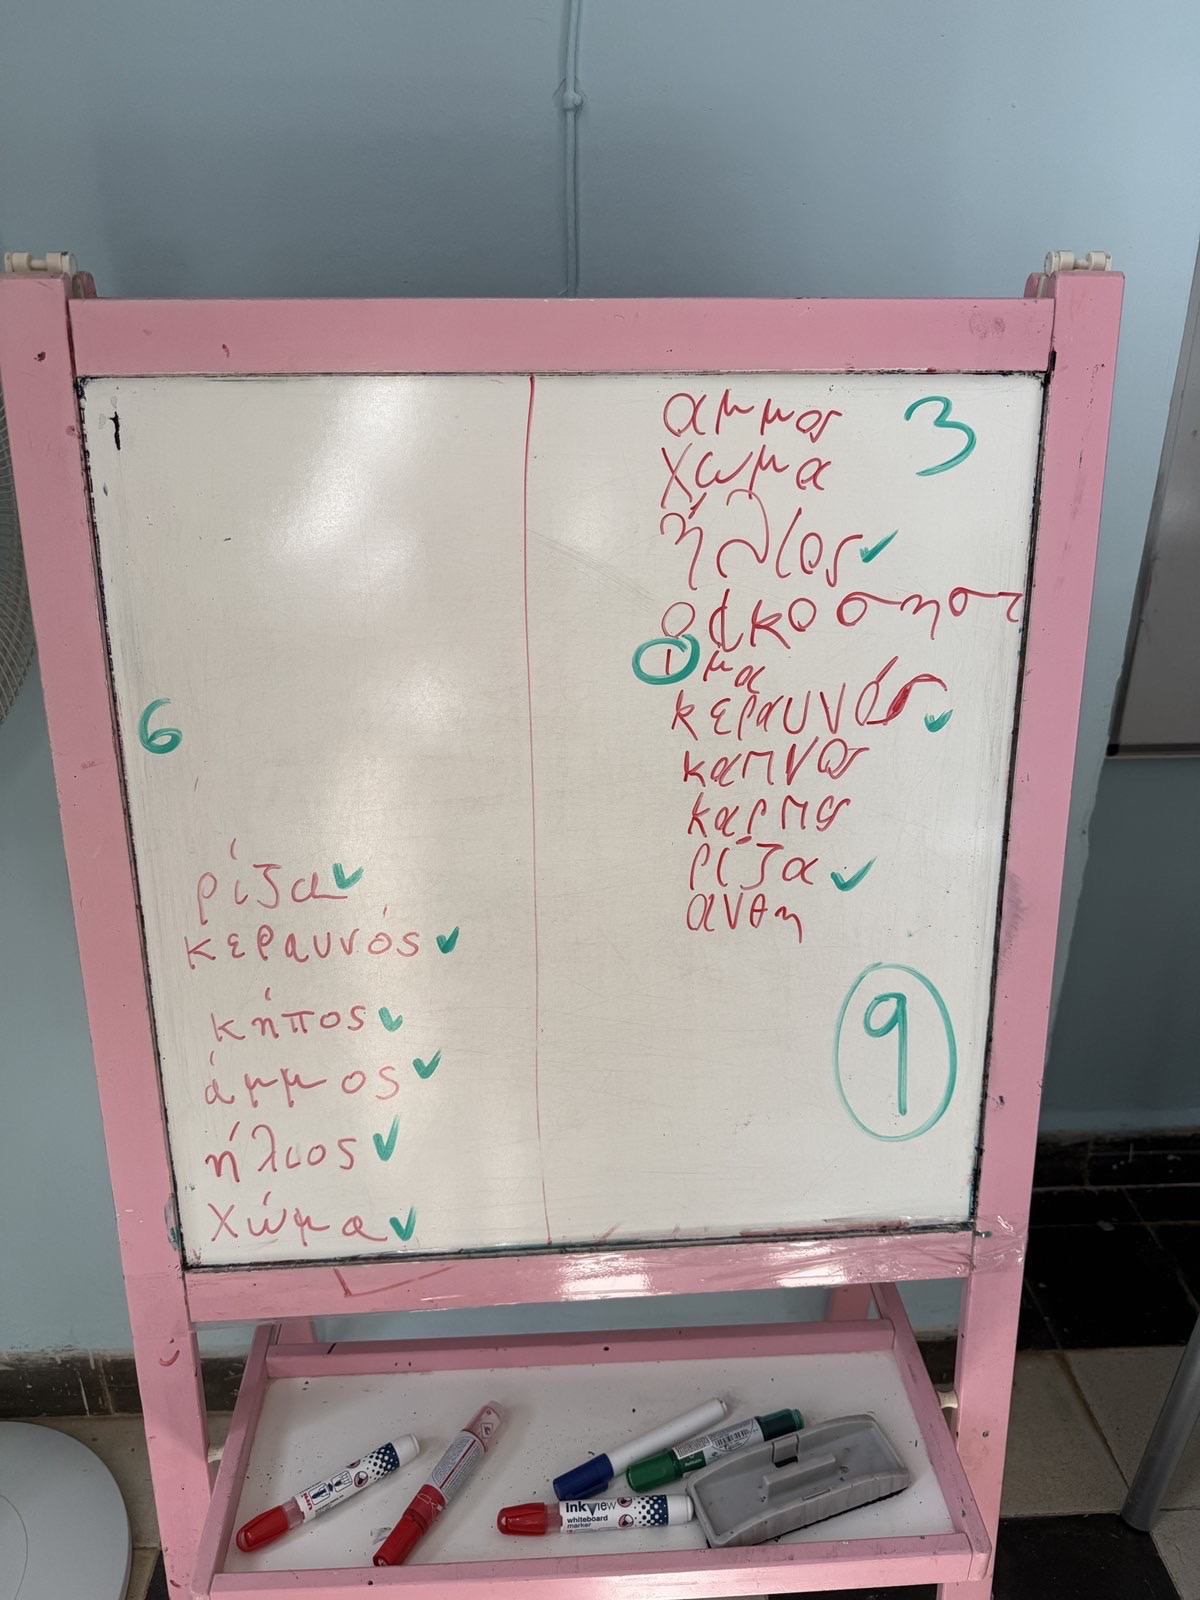 6
ρίζα ✓
κεραυνός ✓
κήπος ✓
άμμος ✓
ήλιος ✓
χώμα ✓
αμμος
3
χωμα
ήλιος ✓
οικοσησι
μα
κεραυνός ✓
καπνος
καρπος
ρίζα ✓
ανθη
9
inkview
whiteboard
marker